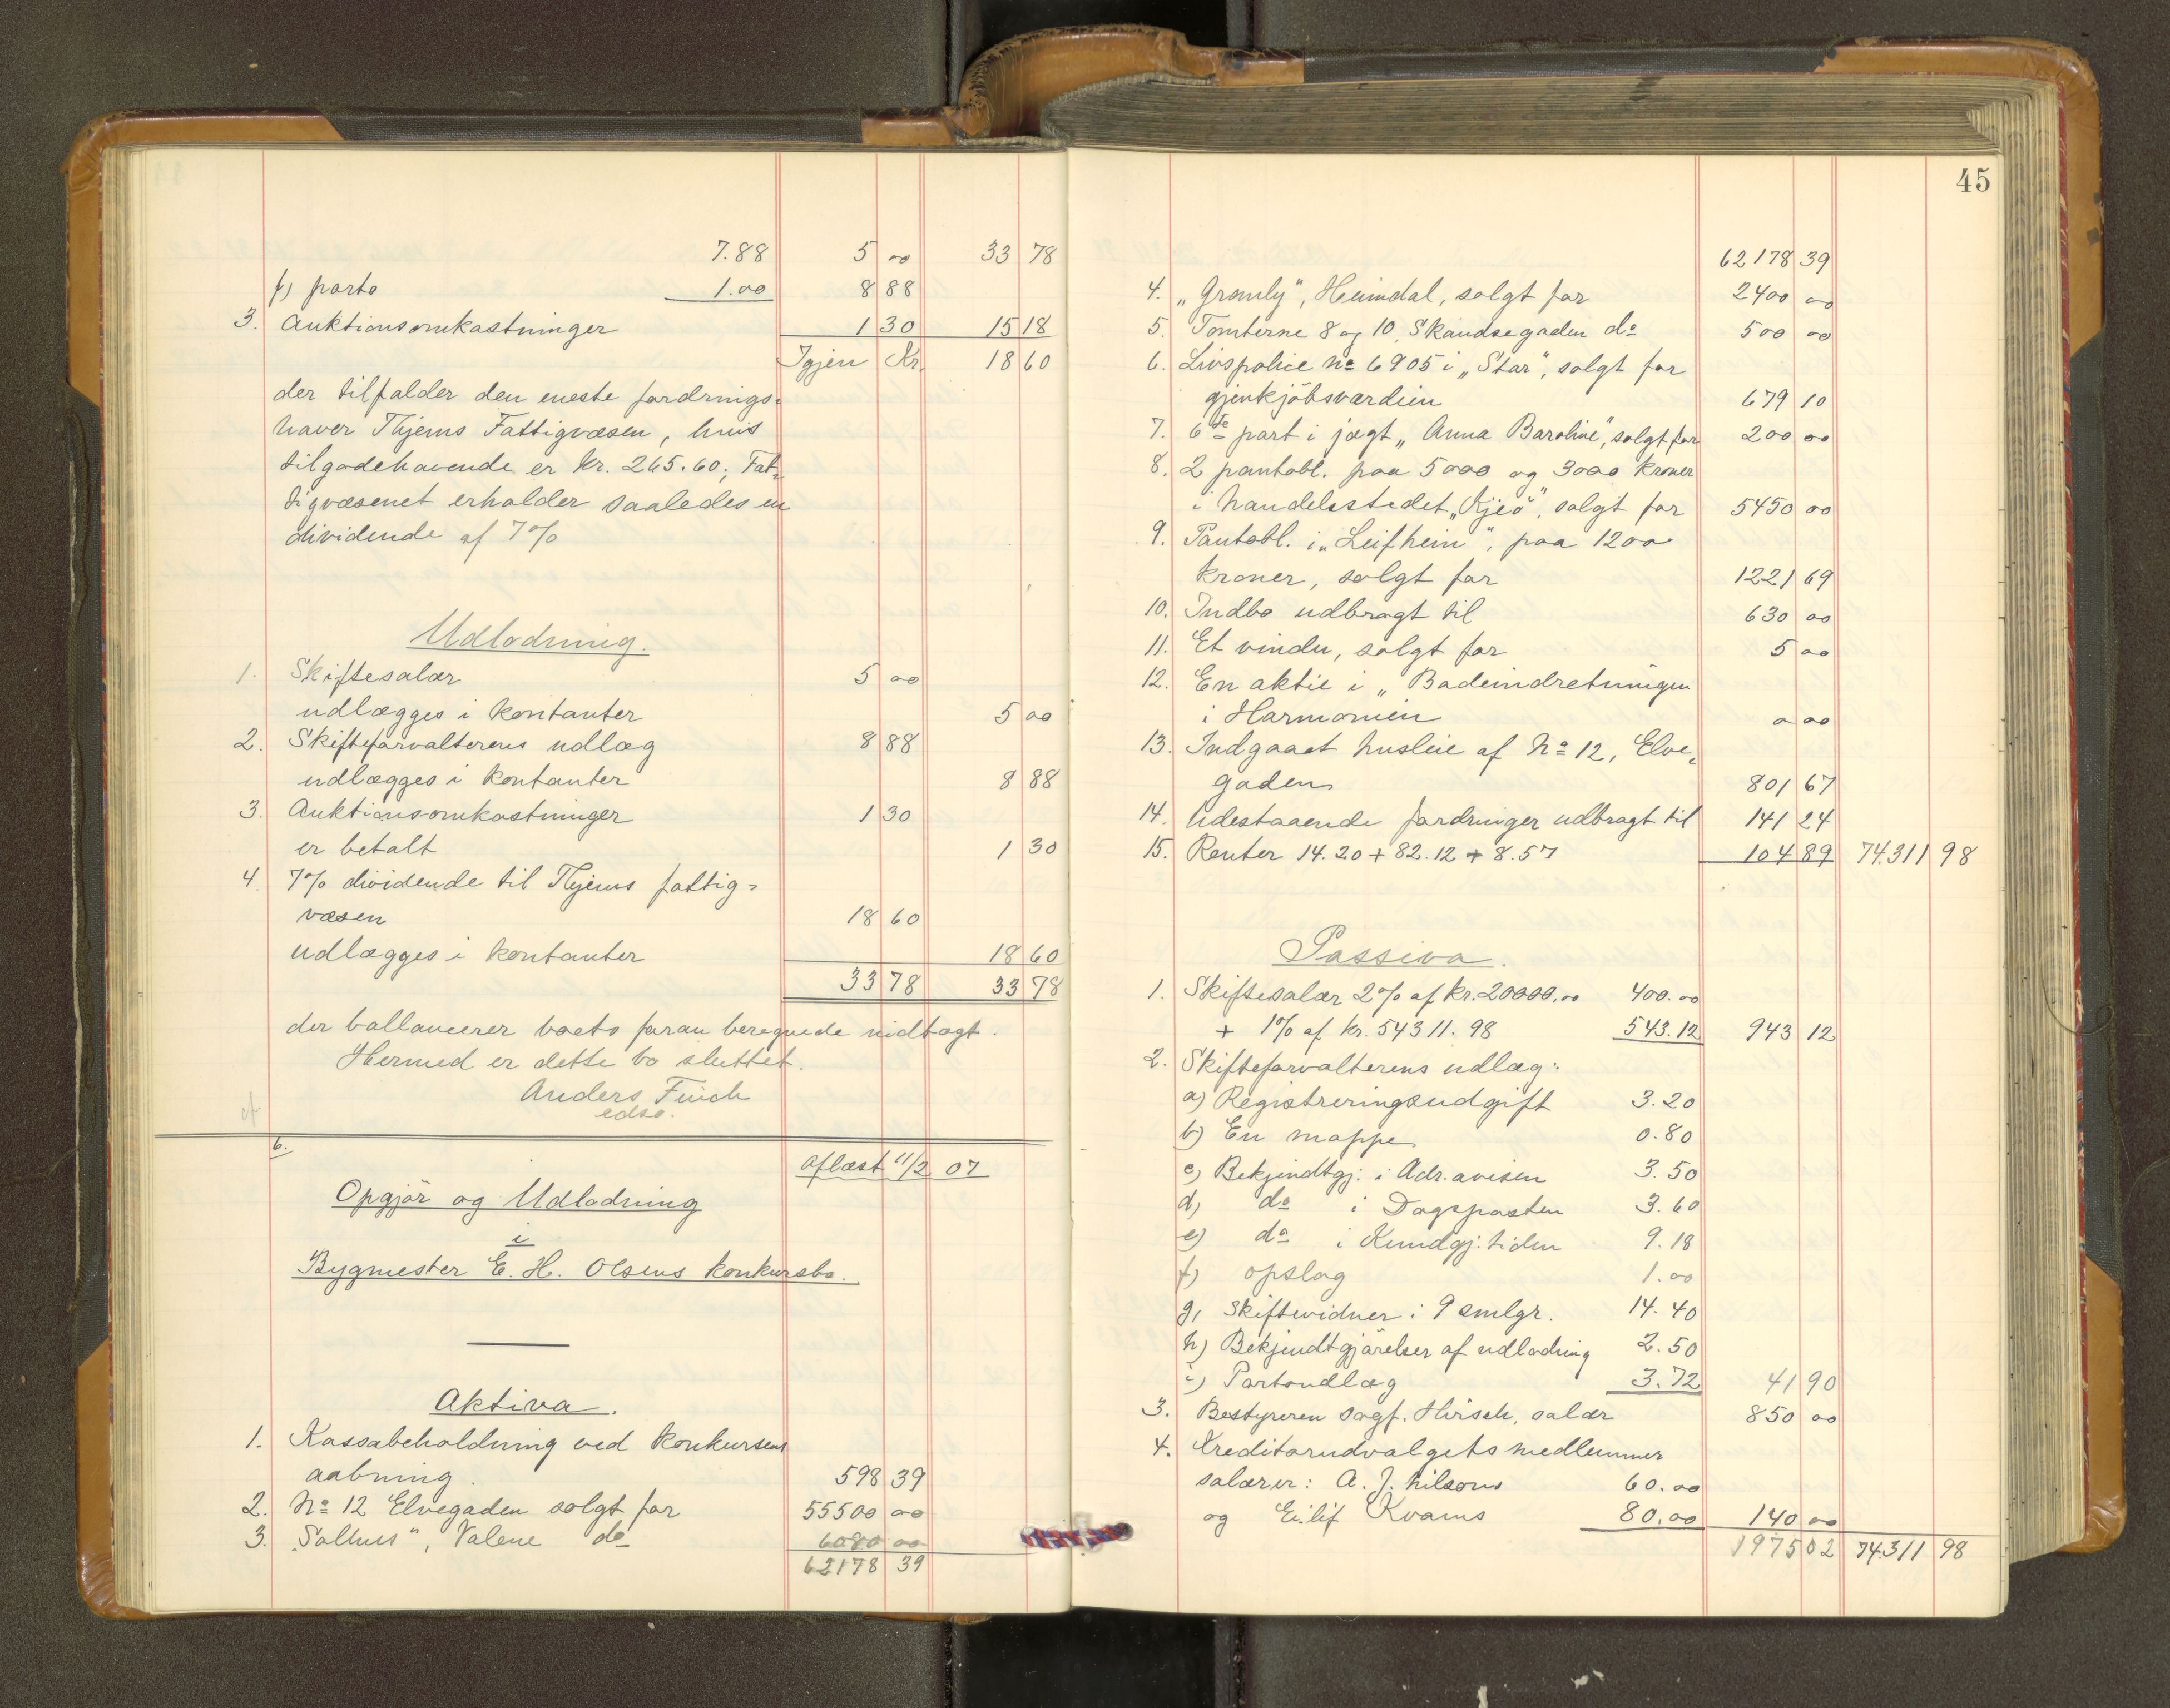 7.88 5 00 33 78
f) porto 1.00 8 88
3. Auktionsomkostninger 1 30 15 18
Igjen Kr. 18 60
der tilfalder den eneste fordrings-
haver Thjems Fattigvæsen, hvis
tilgodehavende er kr. 265.60; Fat-
tigvæsenet erholder saaledes en
dividende af 7%
Udlodning.
1. Skiftesalær 5 00
udlægges i kontanter 5 00
2. Skifteforvalterens udlæg 8 88
udlægges i kontanter 8 88
3. Auktionsomkostninger 1 30
er betalt 1 30
4. 7% dividende til Thjems fattig-
væsen 18 60
udlægges i kontanter 18 60
33 78 33 78
der ballancerer boets foran beregnede indtægt.
Hermed er dette bo sluttet.
Anders Finch
edsv.
6.
Oplæst 11/2 07
Opgjör og Udlodning
i
Bygmester E. H. Olsens konkursbo.
Aktiva.
1. Kassabeholdning ved konkursens
aabning. 598 39
2. No 12 Elvegaden solgt for 55500 00
3. "Solhus", Valene do 6080 00
62178 39
45
62178 39
4. "Gromly", Heimdal, solgt for 2400 00
5. Tomterne 8 og 10, Skandsegaden do 500 00
6. Livspolice No 6905 i "Star", solgt for
gjenkjöbsværdien 679 10
7. 6te part i jægt "Anna Baroline", solgt for 200 00
8. 2 pantobl. paa 5000 og 3000 kroner
i handelsstedet "Kjeö", solgt for 5450 00
9. Pantobl. i "Leifheim", paa 1200
kroner, solgt for 1221 69
10. Indbo udbragt til 630 00
11. Et vindu, solgt for 5 00
12. En aktie i "Badeindretningen
i Harmonien 0 00
13. Indgaaet husleie af No 12, Elve-
gaden 801 67
14. Udestaaende fordringer udbragt til 141 24
15. Renter 14.20 + 82.12 + 8.57 104 89 74311 98
Passiva.
1. Skiftesalær 2% af kr. 20000.00 400.00
+ 1% af kr. 54311.98 543.12 943 12
2. Skifteforvalterens udlæg:
a) Registreringsudgift 3.20
b) En mappe 0.80
c) Bekjendtgj. i Adr.avisen 3.50
d) do i Dagsposten 3.60
e) do i Kundgj.tiden 9.18
f) opslag 1.00
g) skiftevidner i 9 smlgr. 14.40
h) Bekjendtgjörelser af udlodning 2.50
i) Portoudlæg 3.72 41 90
3. Bestyreren sagf. Hirsch, salær 850 00
4. Kreditorudvalgets medlemmer
salærer: A. J. Nilsons 60.00
og Eilif Kvams 80.00 140 00
1975 02 74311 98